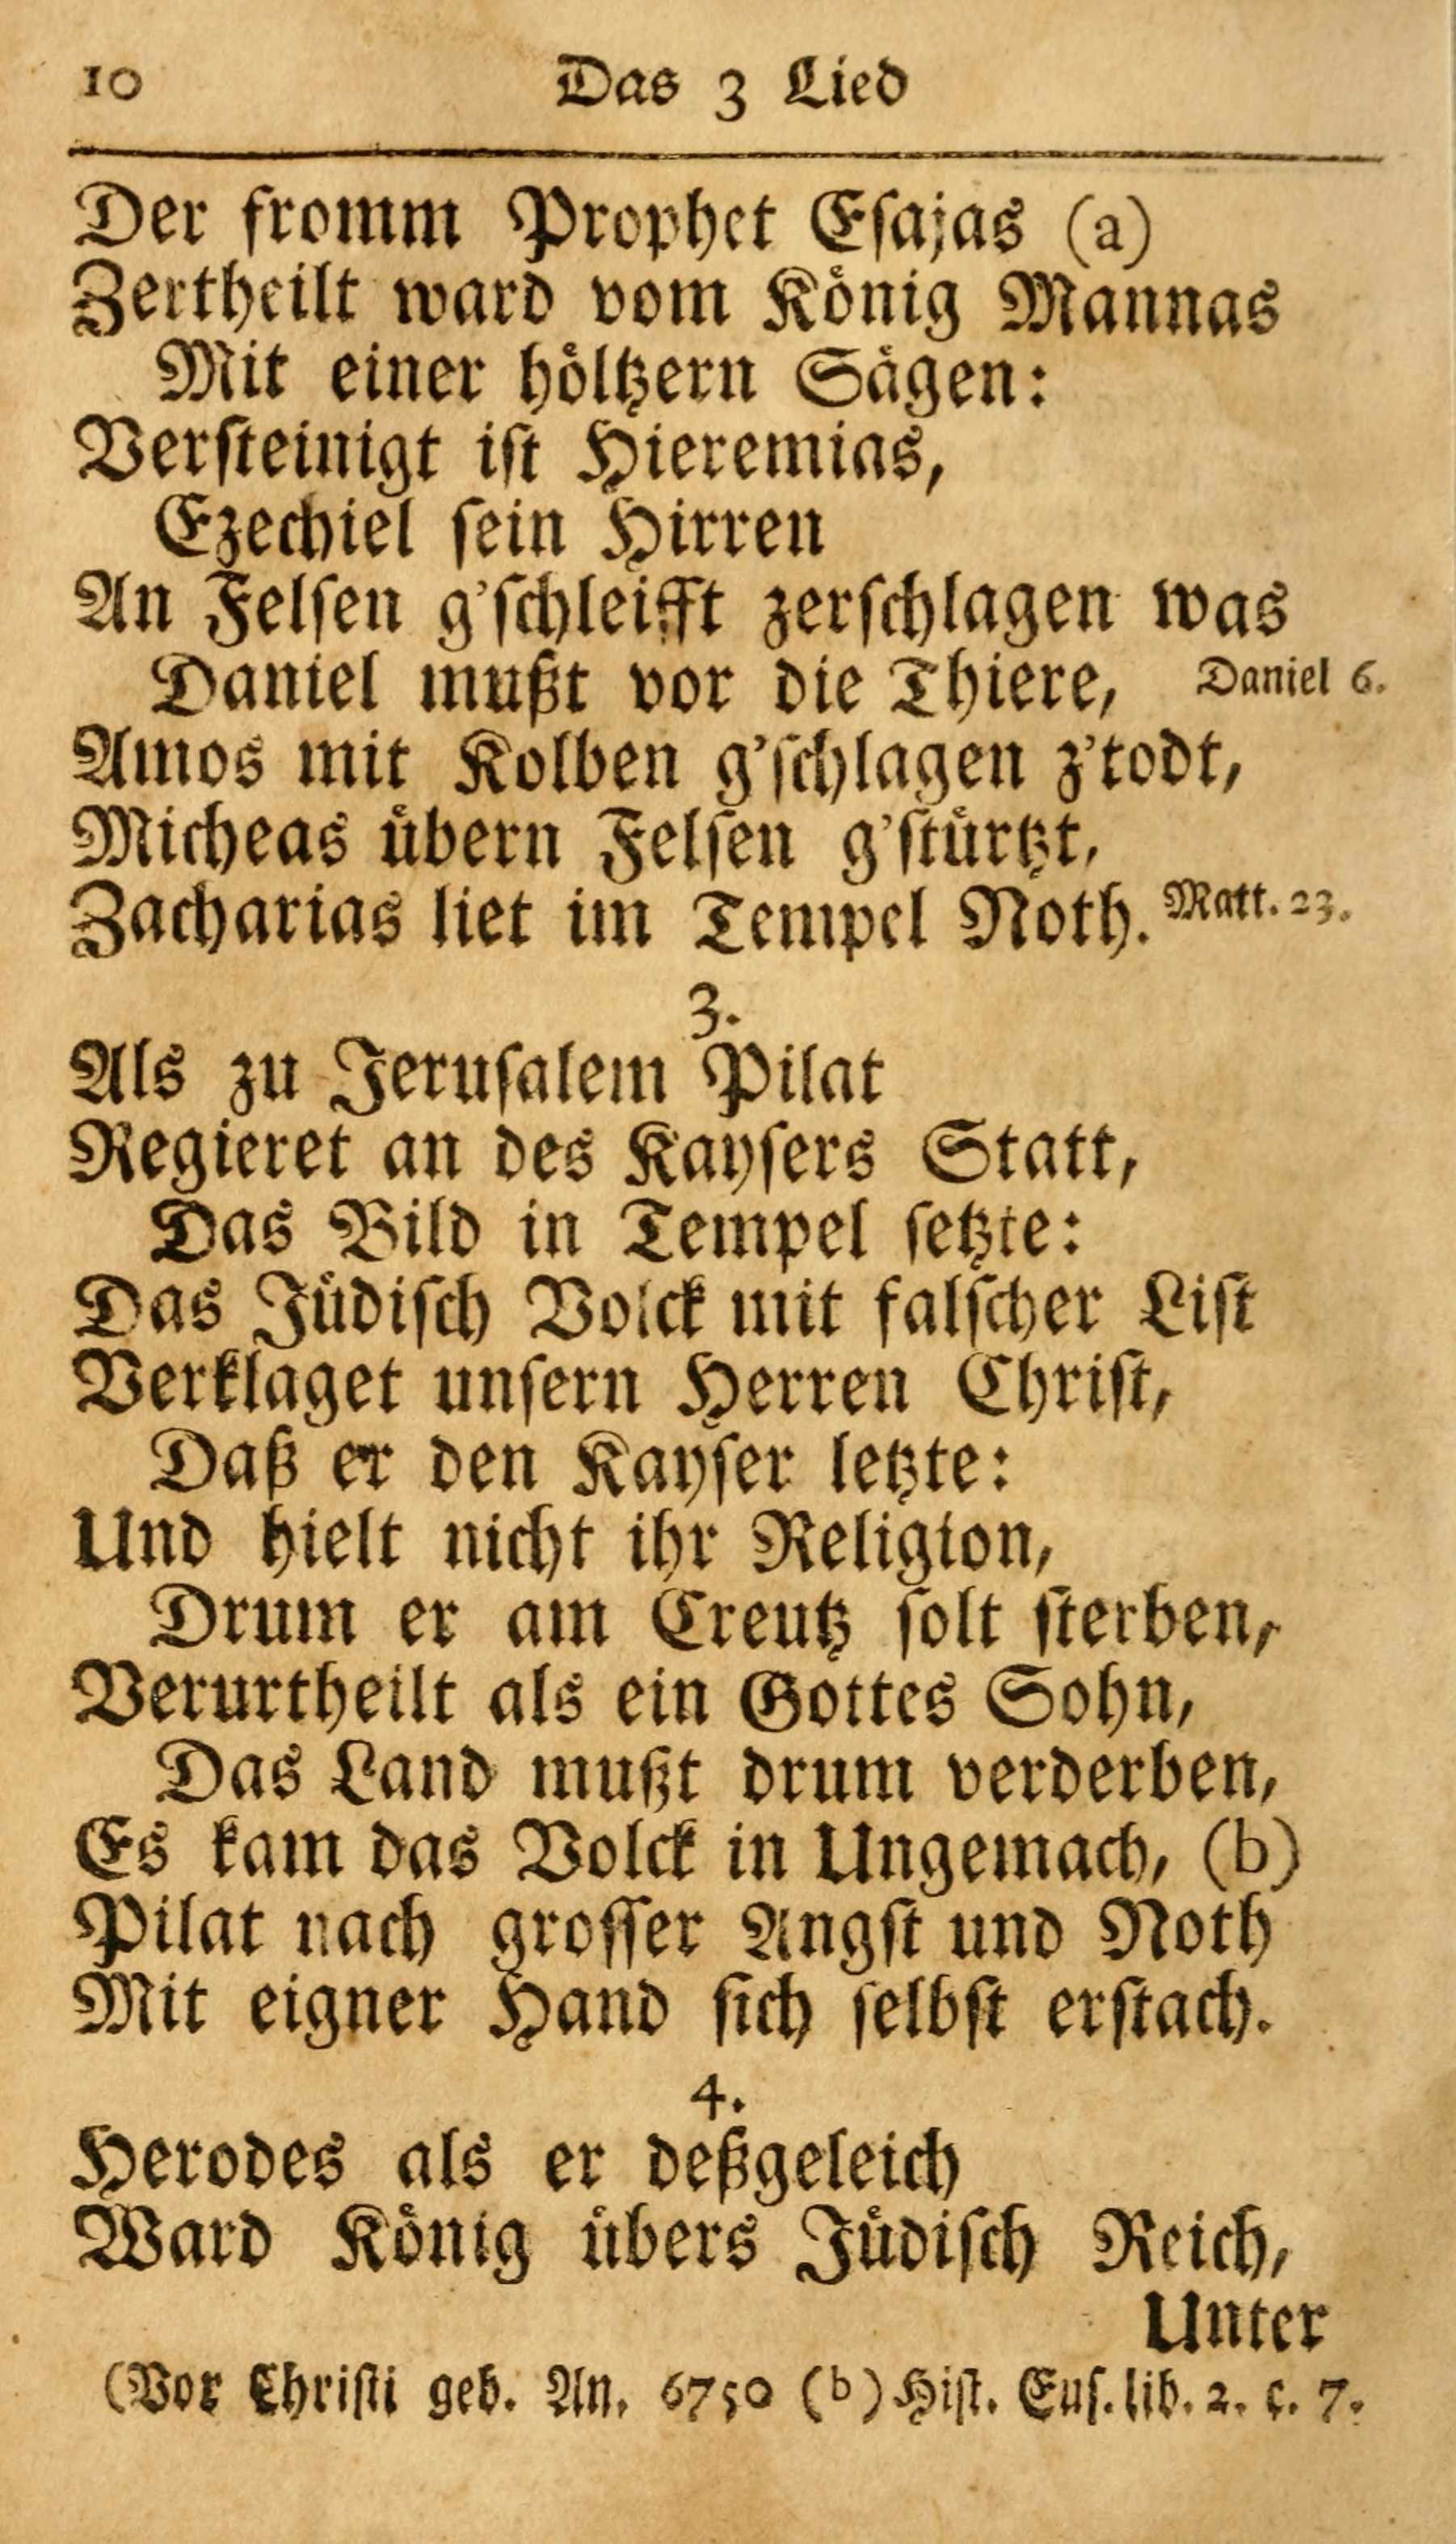 10 Das 3 Lied
Der fromm Prophet Esajas (a)
Zertheilt ward vom Koͤnig Mannas
Mit einer hoͤltzern Saͤgen:
Verſteinigt iſt Hieremias,
Ezechiel ſein Hirren
An Felſen g'ſchleifft zerſchlagen was
Daniel mußt vor die Thiere, Daniel 6.
Amos mit Kolben g'ſchlagen z'todt,
Micheas uͤbern Felſen g'ſtuͤrtzt,
Zacharias liet im Tempel Noth. Matt. 23.
3.
Als zu Jeruſalem Pilat
Regieret an des Kayſers Statt,
Das Bild in Tempel ſetzte:
Das Juͤdiſch Volck mit falſcher Liſt
Verklaget unſern Herren Chriſt,
Daß er den Kayſer letzte:
Und hielt nicht ihr Religion,
Drum er am Creutz ſolt ſterben,
Verurtheilt als ein Gottes Sohn,
Das Land mußt drum verderben,
Es kam das Volck in Ungemach, (b)
Pilat nach groſſer Angſt und Noth
Mit eigner Hand ſich ſelbſt erſtach.
4.
Herodes als er deßgeleich
Ward Koͤnig uͤbers Juͤdiſch Reich,
Unter
(Vor Chriſti geb. An. 6750 (b) Hiſt. Euſ. lib. 2. c. 7.